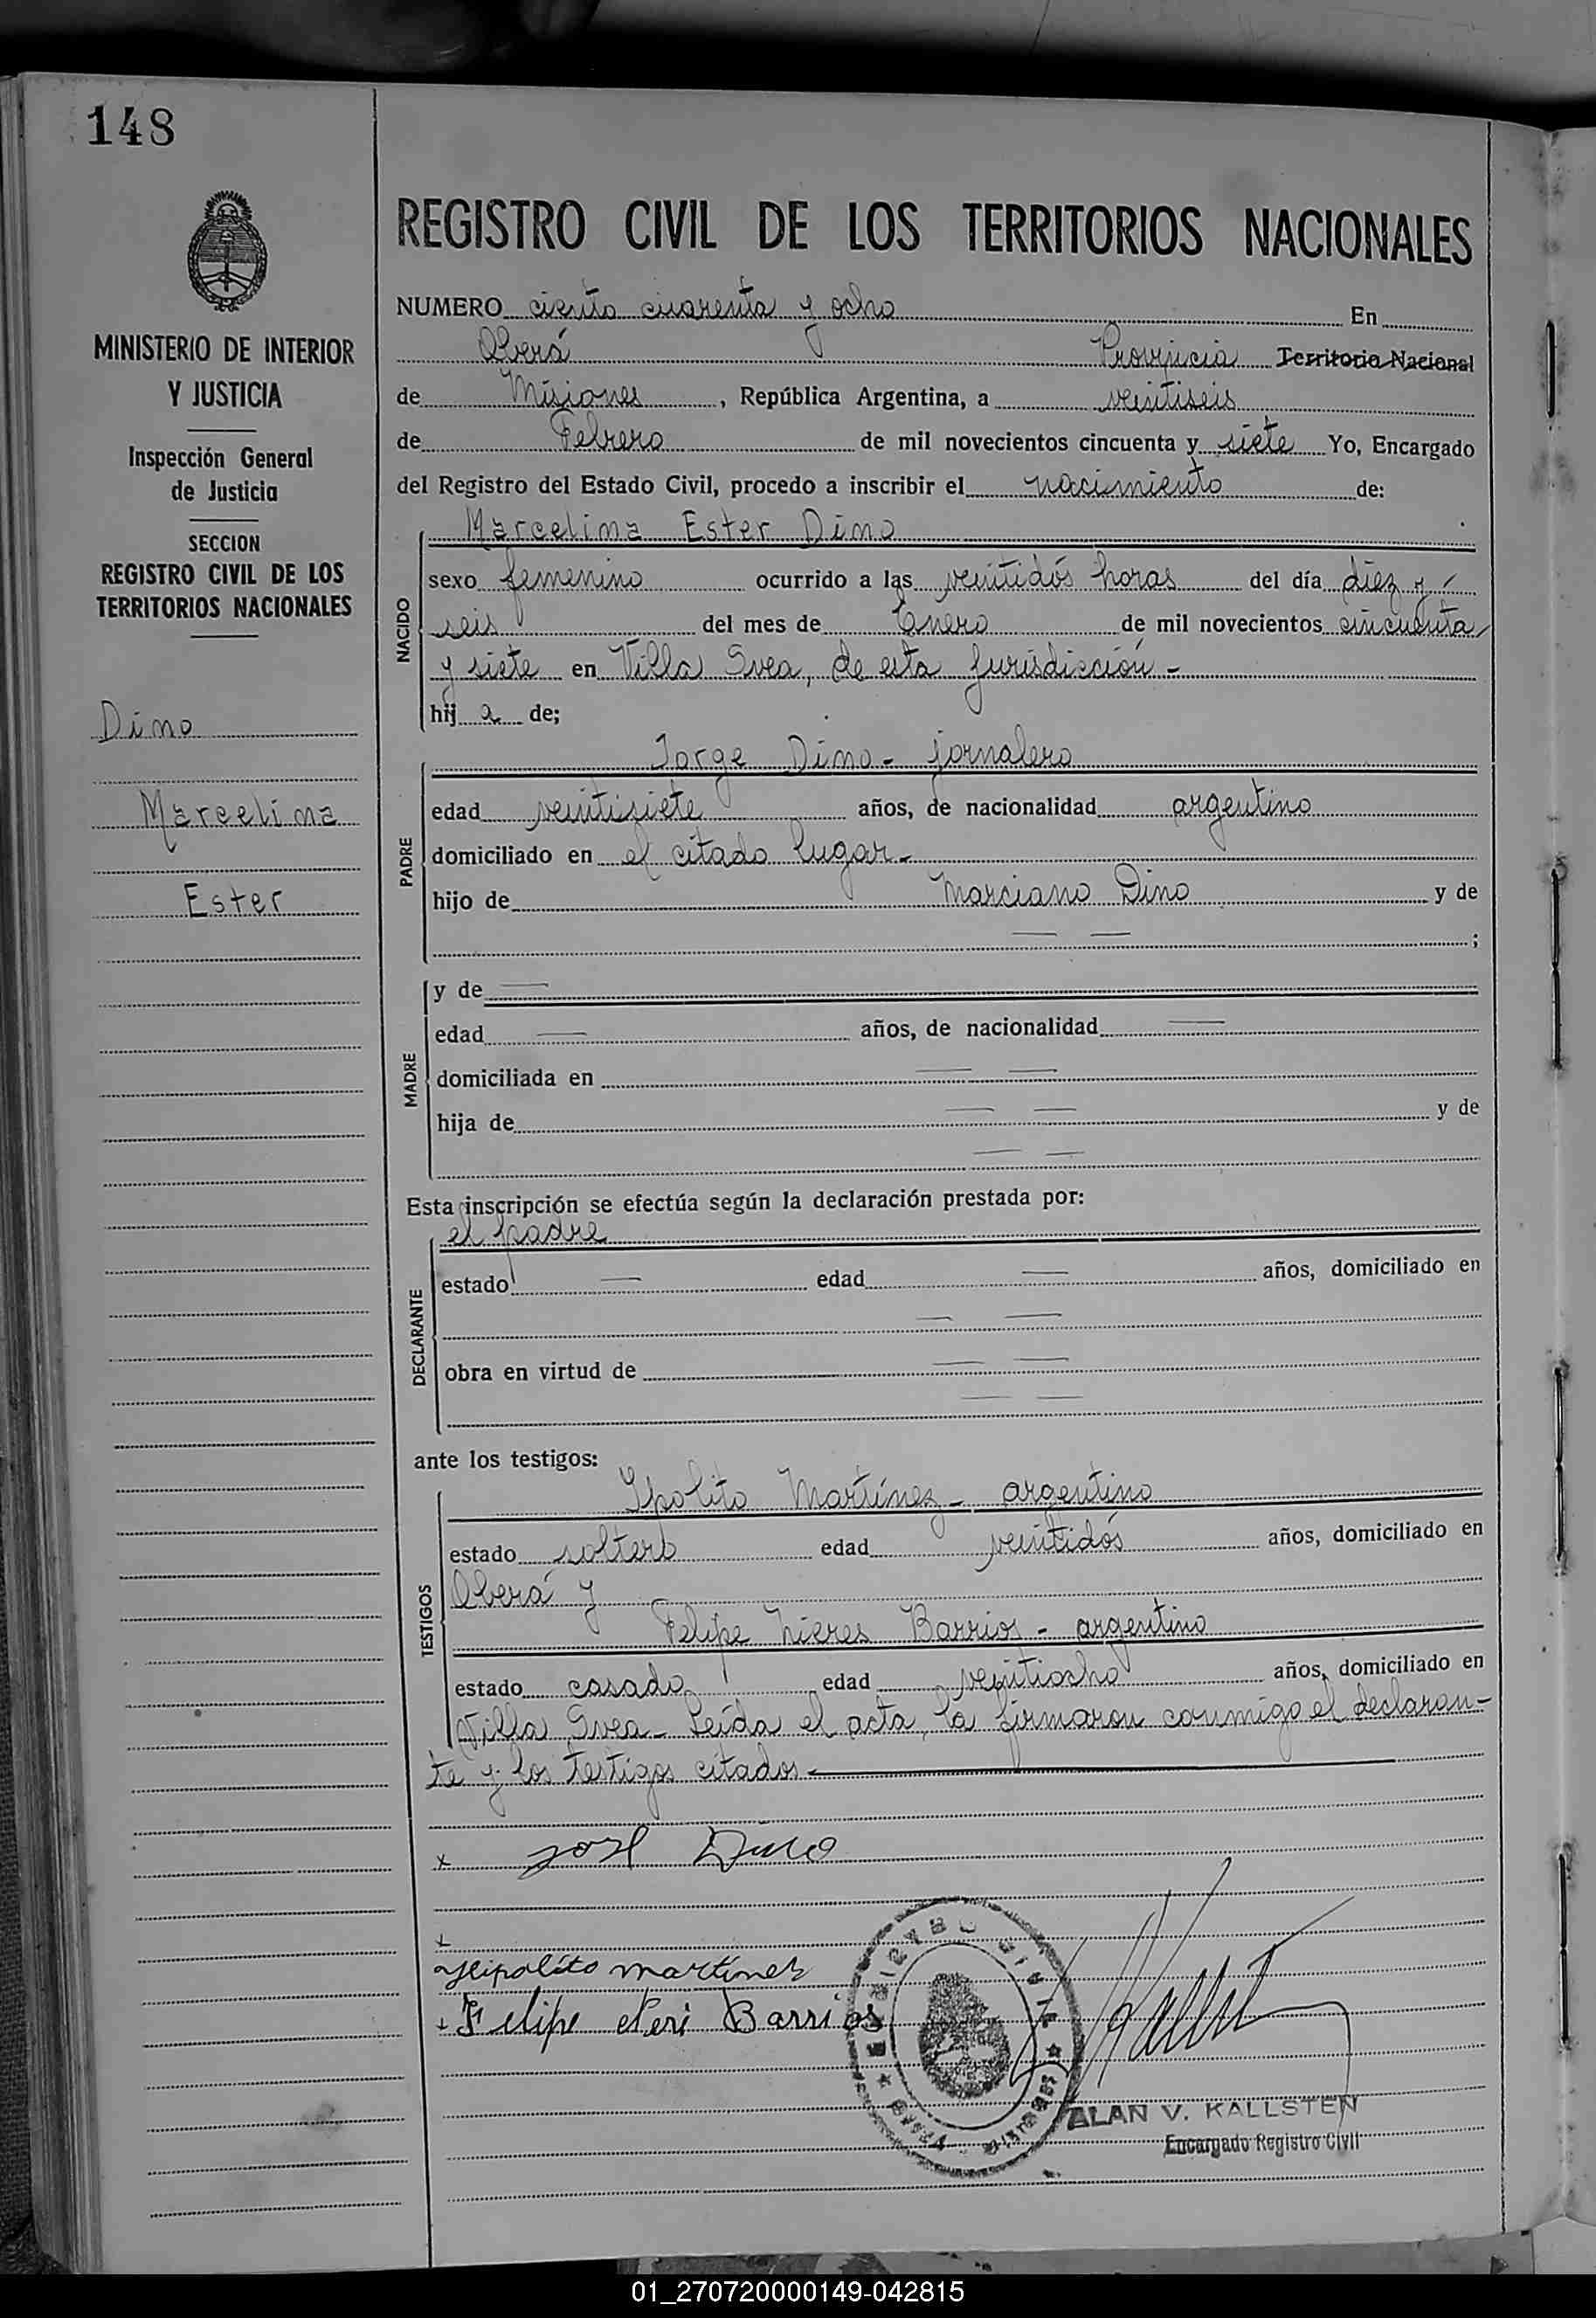 148
REGISTRO CIVIL DE LOS TERRITORIOS NACIONALES
MINISTERIO DE INTERIOR
Y JUSTICIA
Inspección General
de Justicia
SECCION
REGISTRO CIVIL DE LOS
TERRITORIOS NACIONALES
Dino
Marcelina
Ester
NUMERO ciento cuarenta y ocho En
Oberá Provincia Territorio Nacional
de Misiones, República Argentina, a veintiseis
de Febrero de mil novecientos cincuenta y siete Yo, Encargado
del Registro del Estado Civil, procedo a inscribir el nacimiento de:
Marcelina Ester Dino
NACIDO
sexo femenino ocurrido a las veintidós horas del día diez y
seis del mes de Enero de mil novecientos cincuenta
y siete en Villa Svea, de esta jurisdicción -
hij a de;
Jorge Dino - jornalero
PADRE
edad veintisiete años, de nacionalidad argentino
domiciliado en el citado lugar -
hijo de Marciano Dino y de
— — ;
MADRE
y de —
edad — años, de nacionalidad —
domiciliada en — —
hija de — — y de
— —
Esta inscripción se efectúa según la declaración prestada por:
el padre
DECLARANTE
estado — edad — años, domiciliado en
— —
obra en virtud de — —
— —
ante los testigos:
Ypolito Martínez - argentino
TESTIGOS
estado soltero edad veintidós años, domiciliado en
Oberá y
Felipe Nieres Barrios - argentino
estado casado edad veintiocho años, domiciliado en
Villa Svea - Leída el acta, la firmaron conmigo el declaran-
te y los testigos citados
x José Dino
x
Hipolito martinez
x Felipe Neri Barrios
REGISTRO CIVIL
ALAN V. KALLSTEN
Encargado Registro Civil
01_270720000149-042815